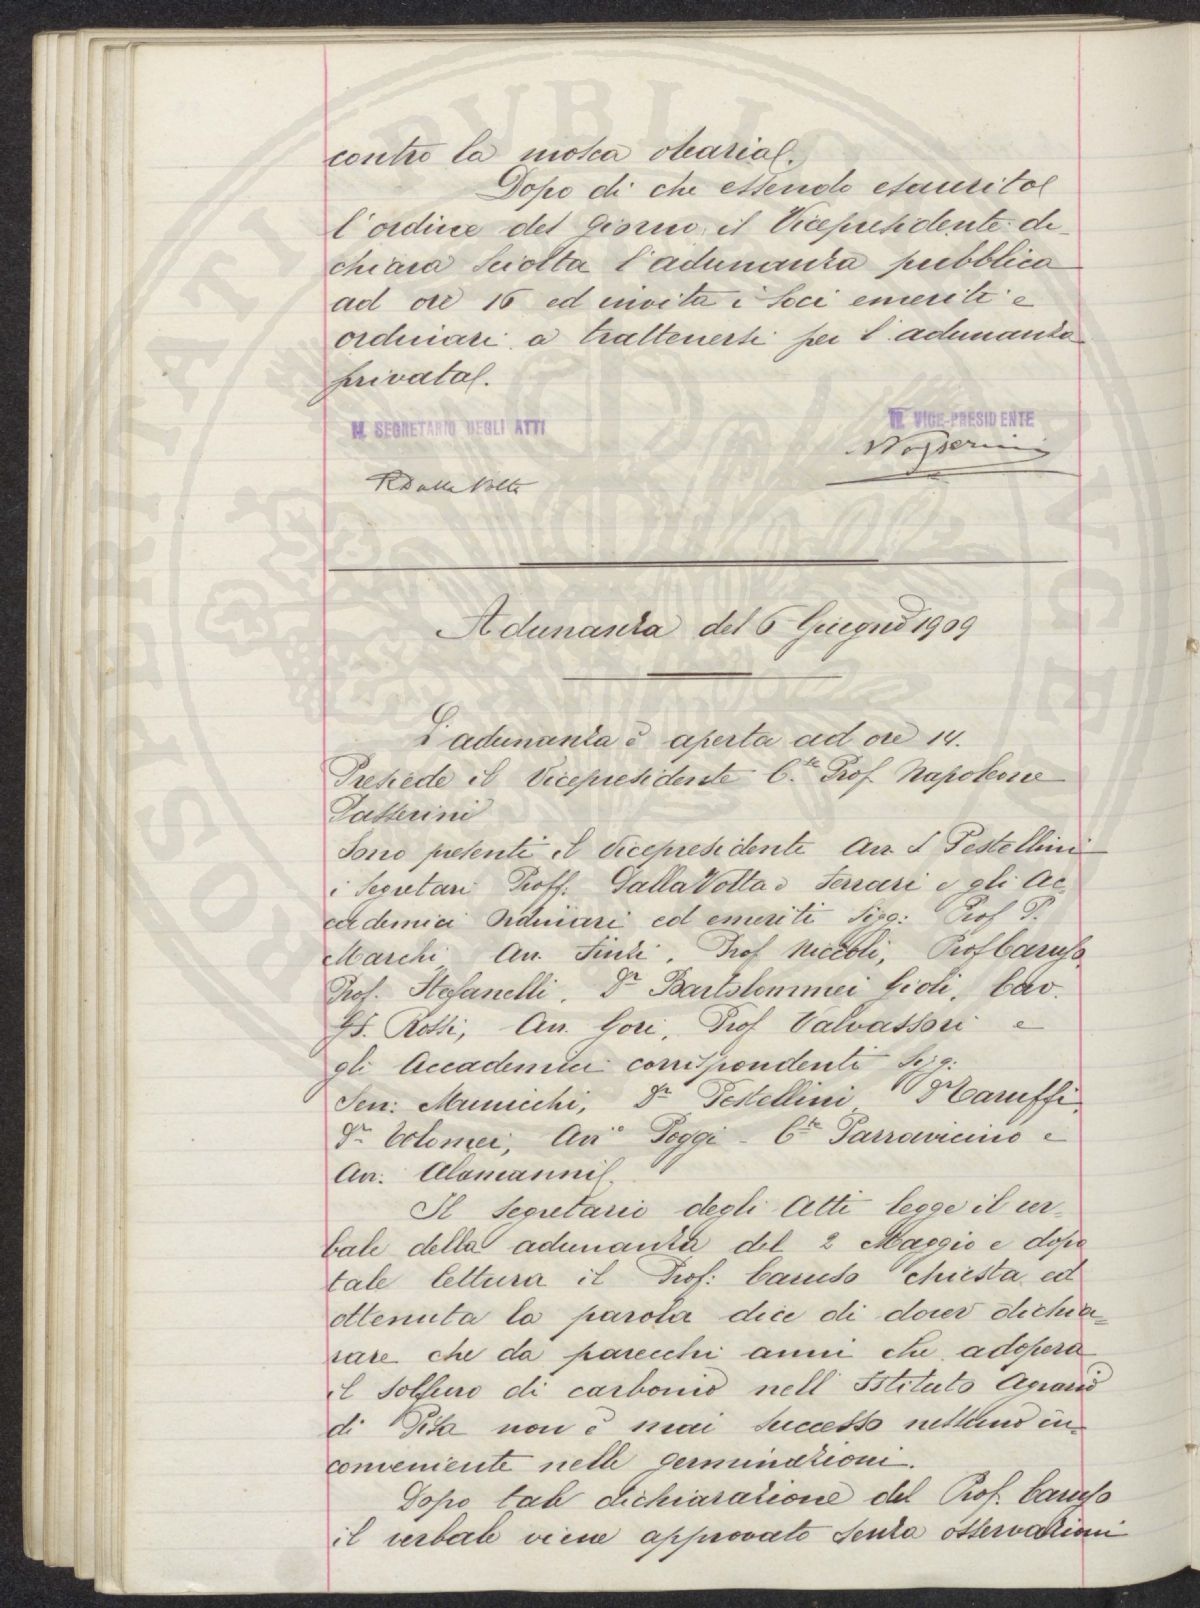 contro la mosca olearia.
Dopo di che essendo esaurito
l'ordine del giorno il Vicepresidente di-
chiara sciolta l'adunanza pubblica
ad ore 16 ed invita i Soci emeriti e
ordinari a trattenersi per l'adunanza
privata.
IL SEGRETARIO DEGLI ATTI
IL VICE-PRESIDENTE
NPasserini
RDalla Volta
Adunanza del 6 Giugno 1909
L'adunanza è aperta ad ore 14.
Presiede il Vicepresidente C.te Prof. Napoleone
Passerini
Sono presenti il Vicepresidente Avv. I Pestellini
i Segretari Proff. Dalla Volta e Ferrari e gli Ac-
cademici Ordinari ed emeriti Sigg: Prof P.
Marchi, Avv. Finzi, Prof Niccoli, Prof Caruso
Prof. Stefanelli, Dr Bartolommei Gioli, Cav.
Rossi, Avv. Gori, Prof Valvassori e
gli Accademici corrispondenti Sig:
Sen: Municchi, Dr Pestellini, Dr Maruffi,
Dr Tolomei, Avv Poggi - C.te Parravicino e
Avv: Alamanni.
Il Segretario degli Atti legge il ver-
bale della adunanza del 2 Maggio e dopo
tale lettura il Prof: Caruso chiesta ed
ottenuta la parola dice di dover dichia-
rare che da parecchi anni che adopera
il solfuro di carbonio nell'Istituto Agrario
di Pisa non è mai successo nessuno in-
conveniente nelle germinazioni.
Dopo tale dichiarazione del Prof. Caruso
il verbale viene approvato senza osservazioni